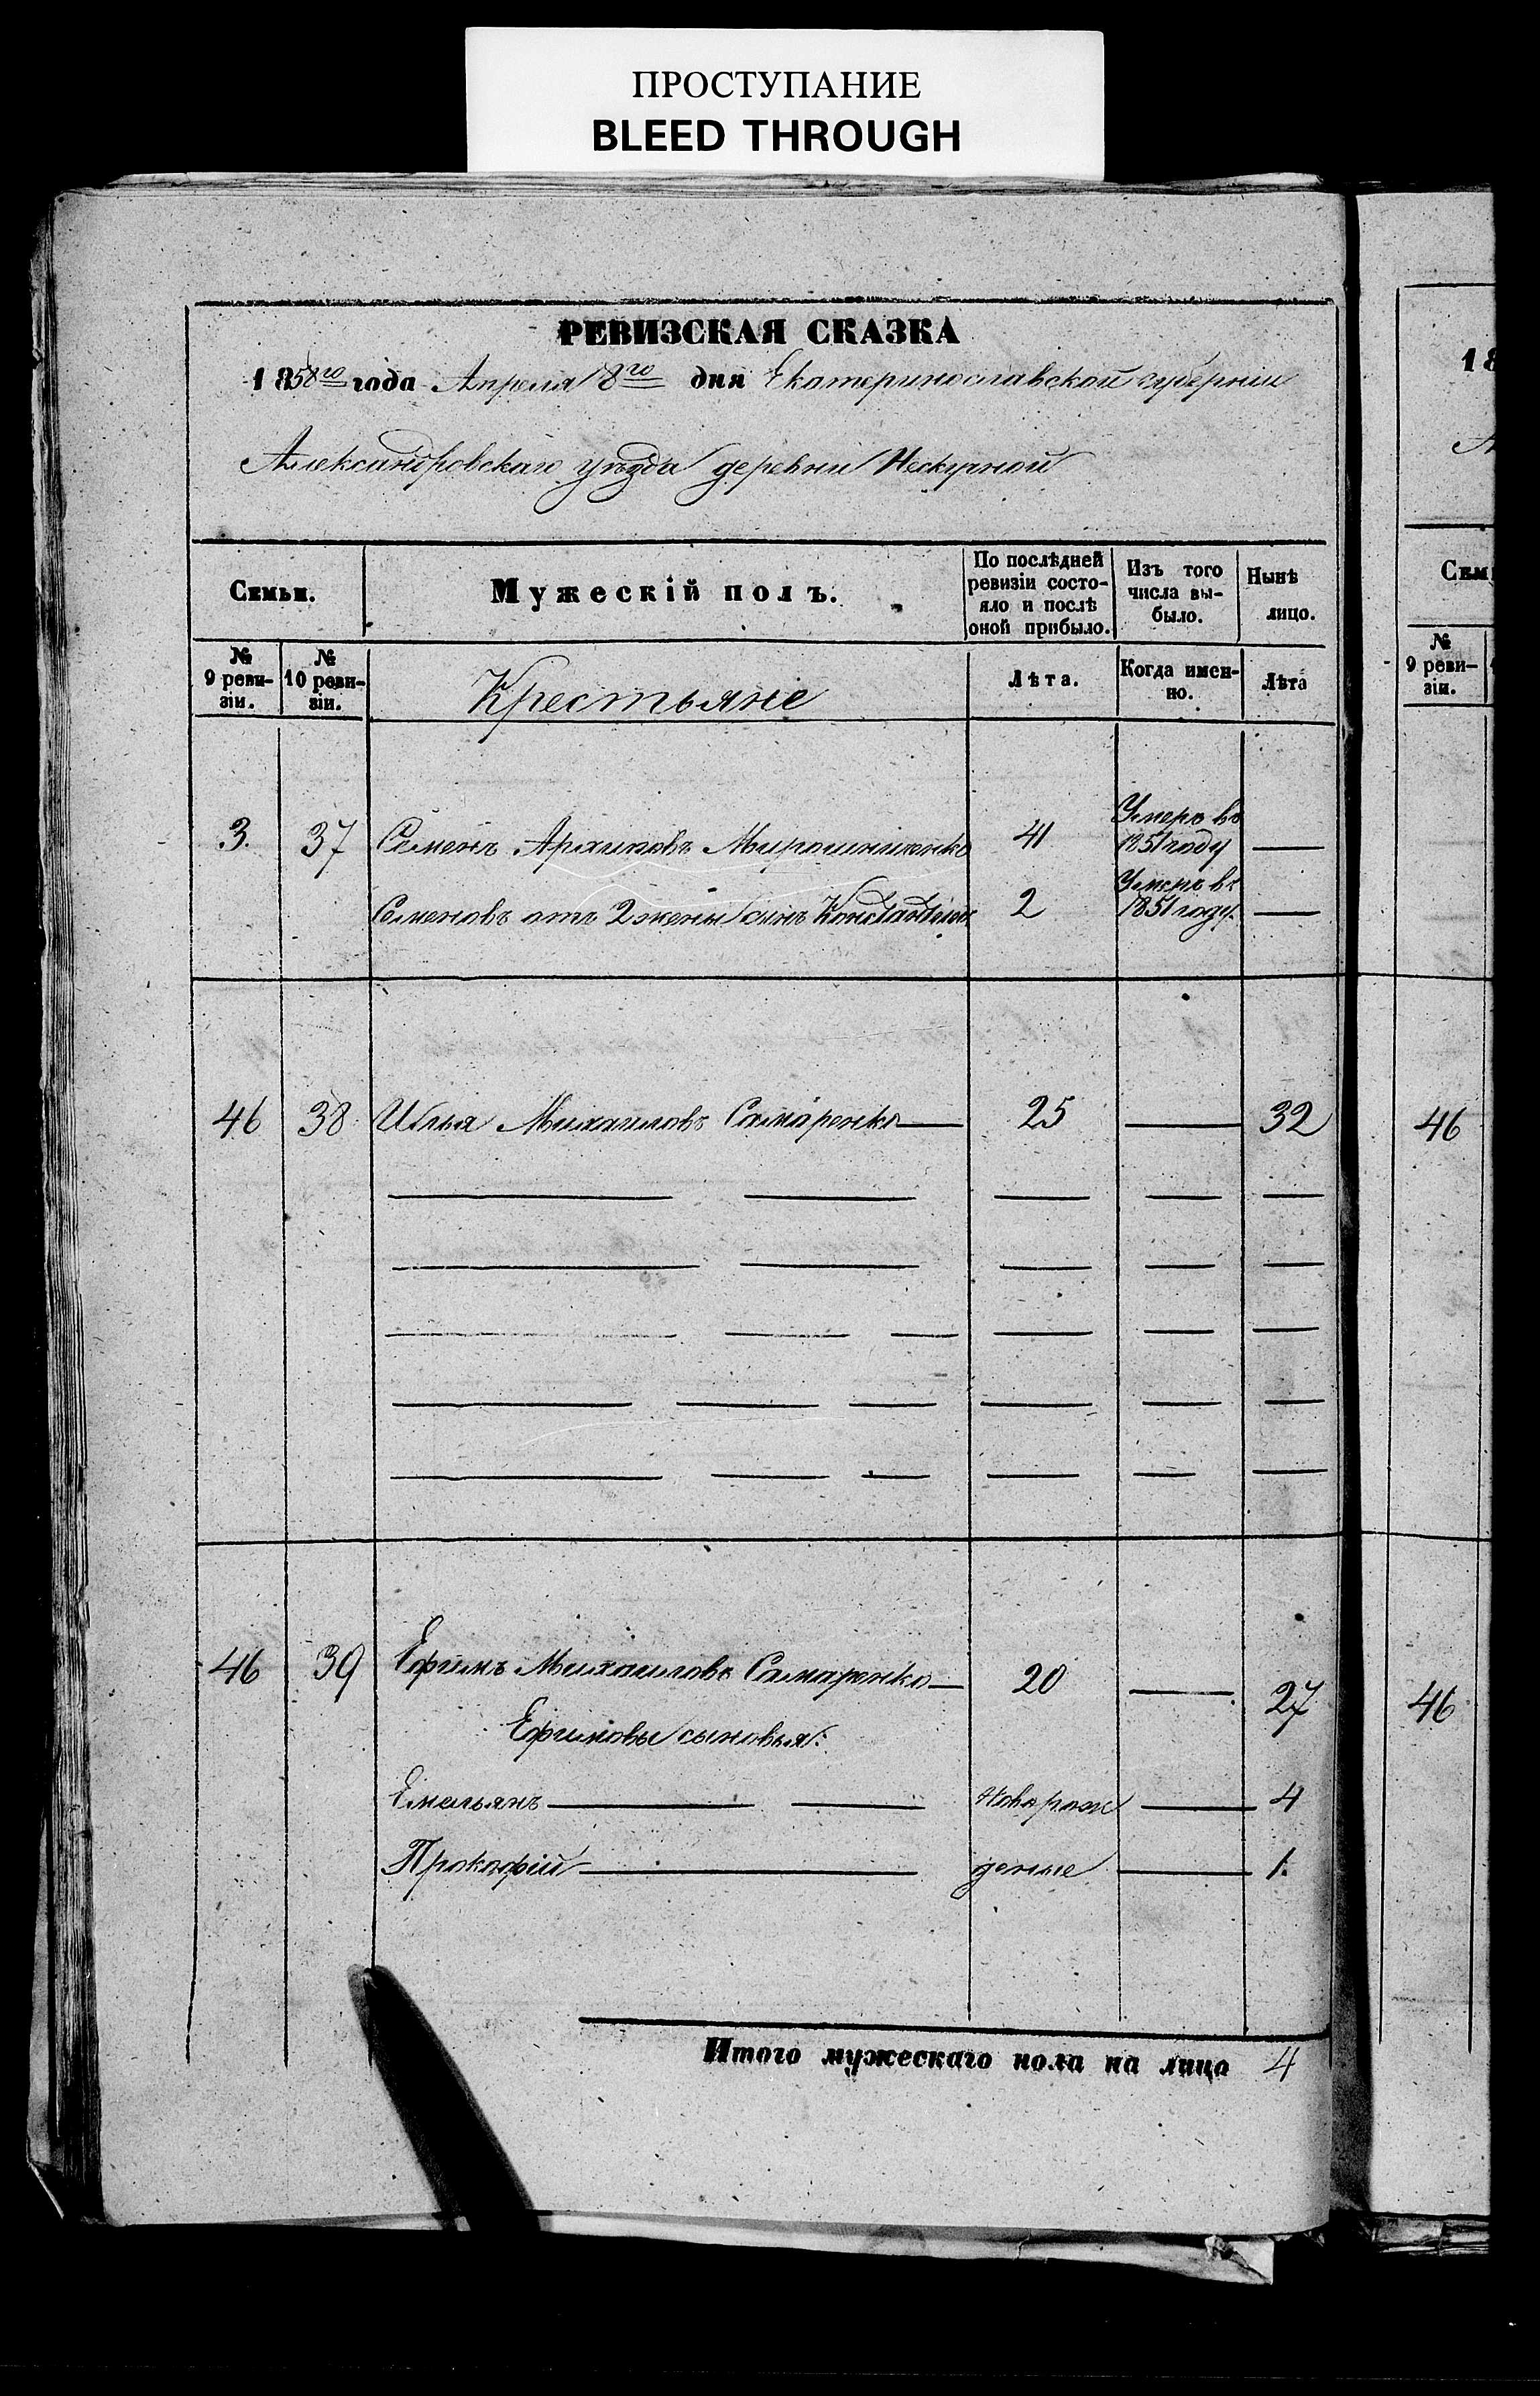 ПРОСТУПАНИЕ
BLEED THROUGH
РЕВИЗСКАЯ СКАЗКА
1858го года Апреля 8го дня Екатеринославской губернии
Александровскаго уѣзда деревни Нескучной
Семьи. Мужескій полъ. По послѣдней ревизіи состояло и послѣ оной прибыло. Изъ того числа выбыло. Нынѣ лицо.
№ 9 ревизіи. № 10 ревизіи. Крестьяне Лѣта. Когда именно. Лѣта
3. 37 Семенъ Архиповъ Мирошниченко 41 Умеръ въ 1851 году —
Семеновъ отъ 2 жены сынъ Константинъ 2 Умеръ въ 1851 году. —
46 38 Илья Михайловъ Самаренко — 25 — 32
46 39 Ефимъ Михайловъ Самаренко — 20 — 27
Ефимовы сыновья:
Емельянъ — новорож — 4
Прокофій — деные — 1.
Итого мужескаго пола на лицо 4
18
Сем
№
9 реви-
зіи.
46
46